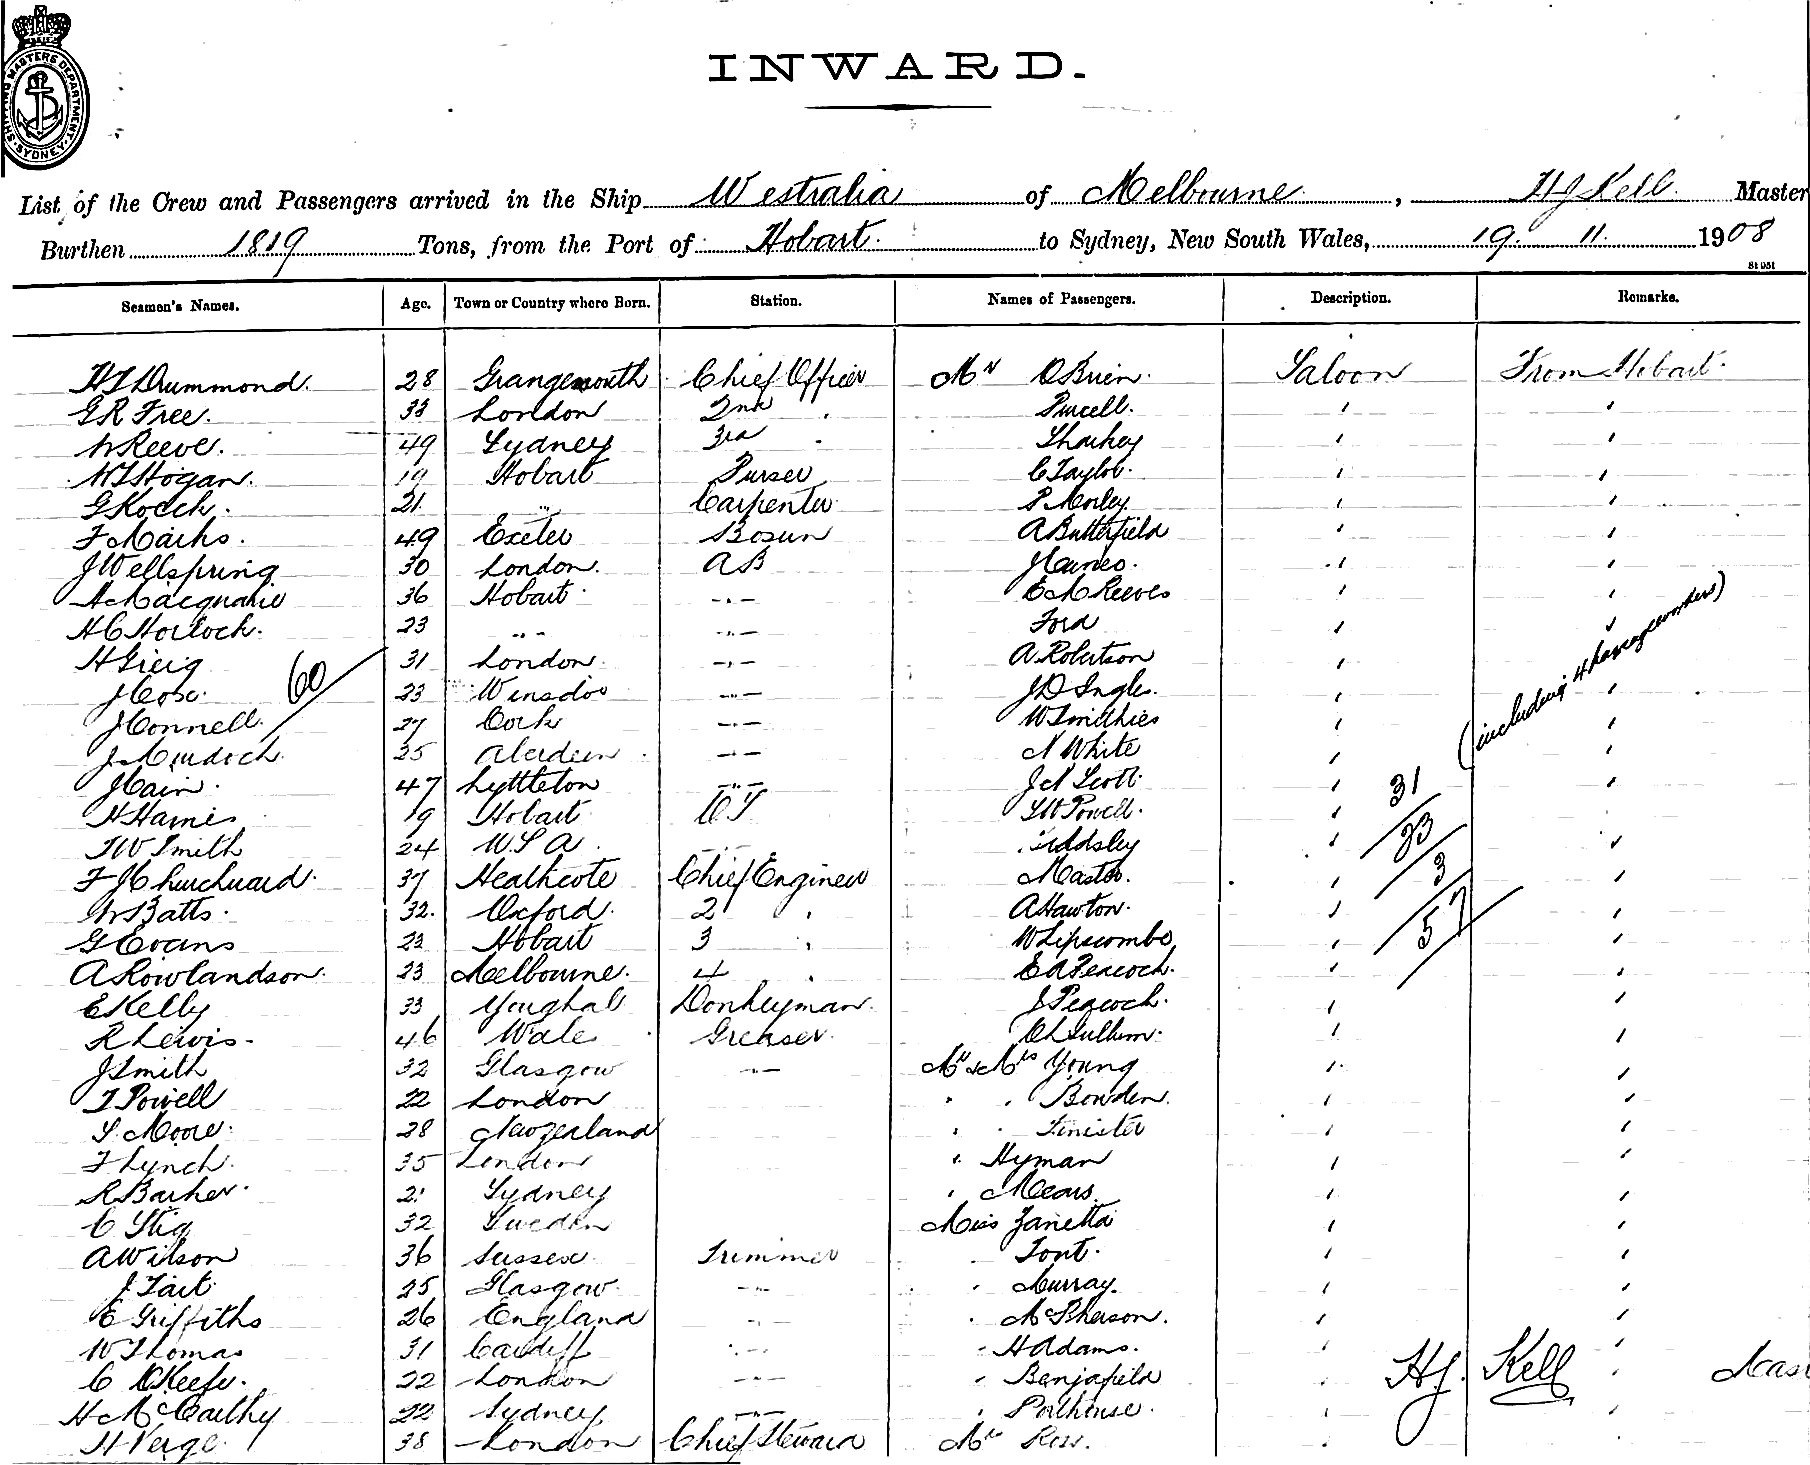 SHIPPING MASTERS DEPARTMENT SYDNEY
INWARD.
List of the Crew and Passengers arrived in the Ship Westralia of Melbourne, H J Kell. Master
Burthen 1819 Tons, from the Port of Hobart. to Sydney, New South Wales, 19. 11. 1908
Seamen's Names. Age. Town or Country where Born. Station. Names of Passengers. Description. Remarks.
Drummond. 28 Grangemouth Chief Officer Mr O'Brien. Saloon From Hobart.
G R Free. 33 London 2nd Purcell.
W Reeve. 49 Sydney 3rd Sharkey
Hogan. 19 Hobart Purser C Taylor.
G Koch. 21. Carpenter P Morley
F Marks. 49 Exeter Bosun A Butterfield
J Wellspring 30 London. AB J Cameo.
Macquarie 36 Hobart E M Reeves
H C Horlock. 23 Ford
H Greig 31 London. A Robertson
J Cox. 60 23 Winsdor J D Ingles.
J Connell. 27 Cork W Smithies
J Murdoch. 25 Aberdeen N White
(including 4 hanagers)
J Cain. 47 Lyttleton 31
H Harris 19 Hobart OS Powell.
T W Smith 24 U.S.A. 23
F J Churchward. 37 Heathcote Chief Engineer 3
W Batts. 32. Oxford. 2 A Hawton. 57
G Evans 22 Hobart 3 W Lipscombe
A Rowlandson. 23 Melbourne. 4 E A Peacock.
E Kelly 33 Youghal Donkeyman. J Peacock.
R Lewis. 46 Wales Greaser.
J Smith 32 Glasgow Mr & Mrs Young
T Powell 22 London Bowden.
S. Moore. 28 New Zealand Finister
F Lynch. 35 London Hyman
R Barker. 21 Sydney Mears.
C Stig 32 Sweden Miss Zanetta
A Wilson 36 Sussex Trimmer Font.
J Tait 25 Glasgow. Murray.
E Griffiths 26 England McPherson.
W Thomas 31 Cardiff H Adams.
C O'Keefe. 22 London Benjafield H J. Kell Mas
H McCarthy 22 Sydney Porthouse.
H Verge. 38 London Chief Steward Mrs Ross.